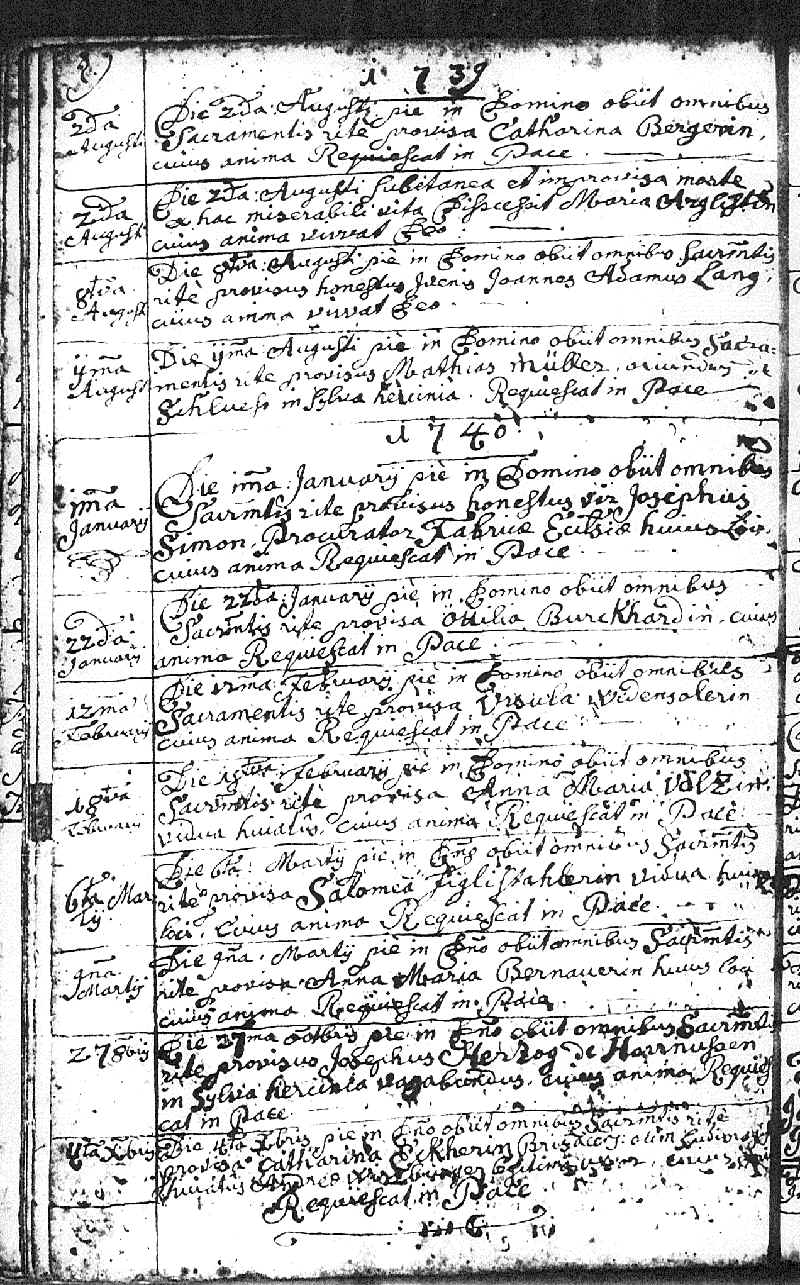 1739
2da Augusti
Die 2da: Augusti pie in Domino obiit omnibus
Sacramentis rite provisa Catharina Bergerin,
cuius anima Requiescat in Pace.
2da Augusti
Die 2da: Augusti subitanea et improvisa morte
ex hac miserabili vita Discessit Maria
cuius anima vivat Deo.
8tva August
Die 8tva: Augusti pie in Domino obiit omnibus Sacrmtis
rite provisus honestus Jvenis Joannes Adamus Lang,
cuius anima vivat Deo.
ijma August
Die ijma Augusti pie in Domino obiit omnibus Sacra-
mentis rite provisus Mathias Müller, oriundus
in Sylva hercinia. Requiescat in Pace
1740
jma Januarij
Die jma: Januarij pie in Domino obiit omnibus
Sacrmtis rite provisus honestus vir Josephus
Simon, Procurator Fabricæ Eclsiæ huius Loci,
cuius anima Requiescat in Pace.
22da Januarij
Die 22da: Januarij pie in Domino obiit omnibus
Sacrmtis rite provisa Ottilia Burckhardin, cuius
anima Requiescat in Pace.
12ma Februarij
Die 12ma: Februarij pie in Domino obiit omnibus
Sacramentis rite provisa Ursula
cuius anima Requiescat in Pace
18tva Februarij
Die 18tva: Februarij pie in Domino obiit omnibus
Sacrmtis rite provisa Anna Maria Völzin,
vidua huiatis, cuius anima Requiescat in Pace.
6ta Mar
tij
Die 6ta: Martij pie in Dno obiit omnibus Sacrmtis
rite provisa Salomea vidua huius
loci, Cuius anima Requiescat in Pace.
9na Martij
Die 9na: Martij pie in Dno obiit omnibus Sacrmtis
rite provisa Anna Maria Bernauerin huius loci
cuius anima Requiescat in Pace.
27 8bris
Die 27ma octbris pie in Dno obiit omnibus Sacrmtis
rite provisus Josephus Herzog de
in Sylva hercinia vagabundus, cuius anima Requies
cat in Pace
4ta Xbris
Die 4ta Xbris pie in Dno obiit omnibus Sacrmtis rite
provisa Catharina Eckherin olim
huiatis
Requiescat in Pace